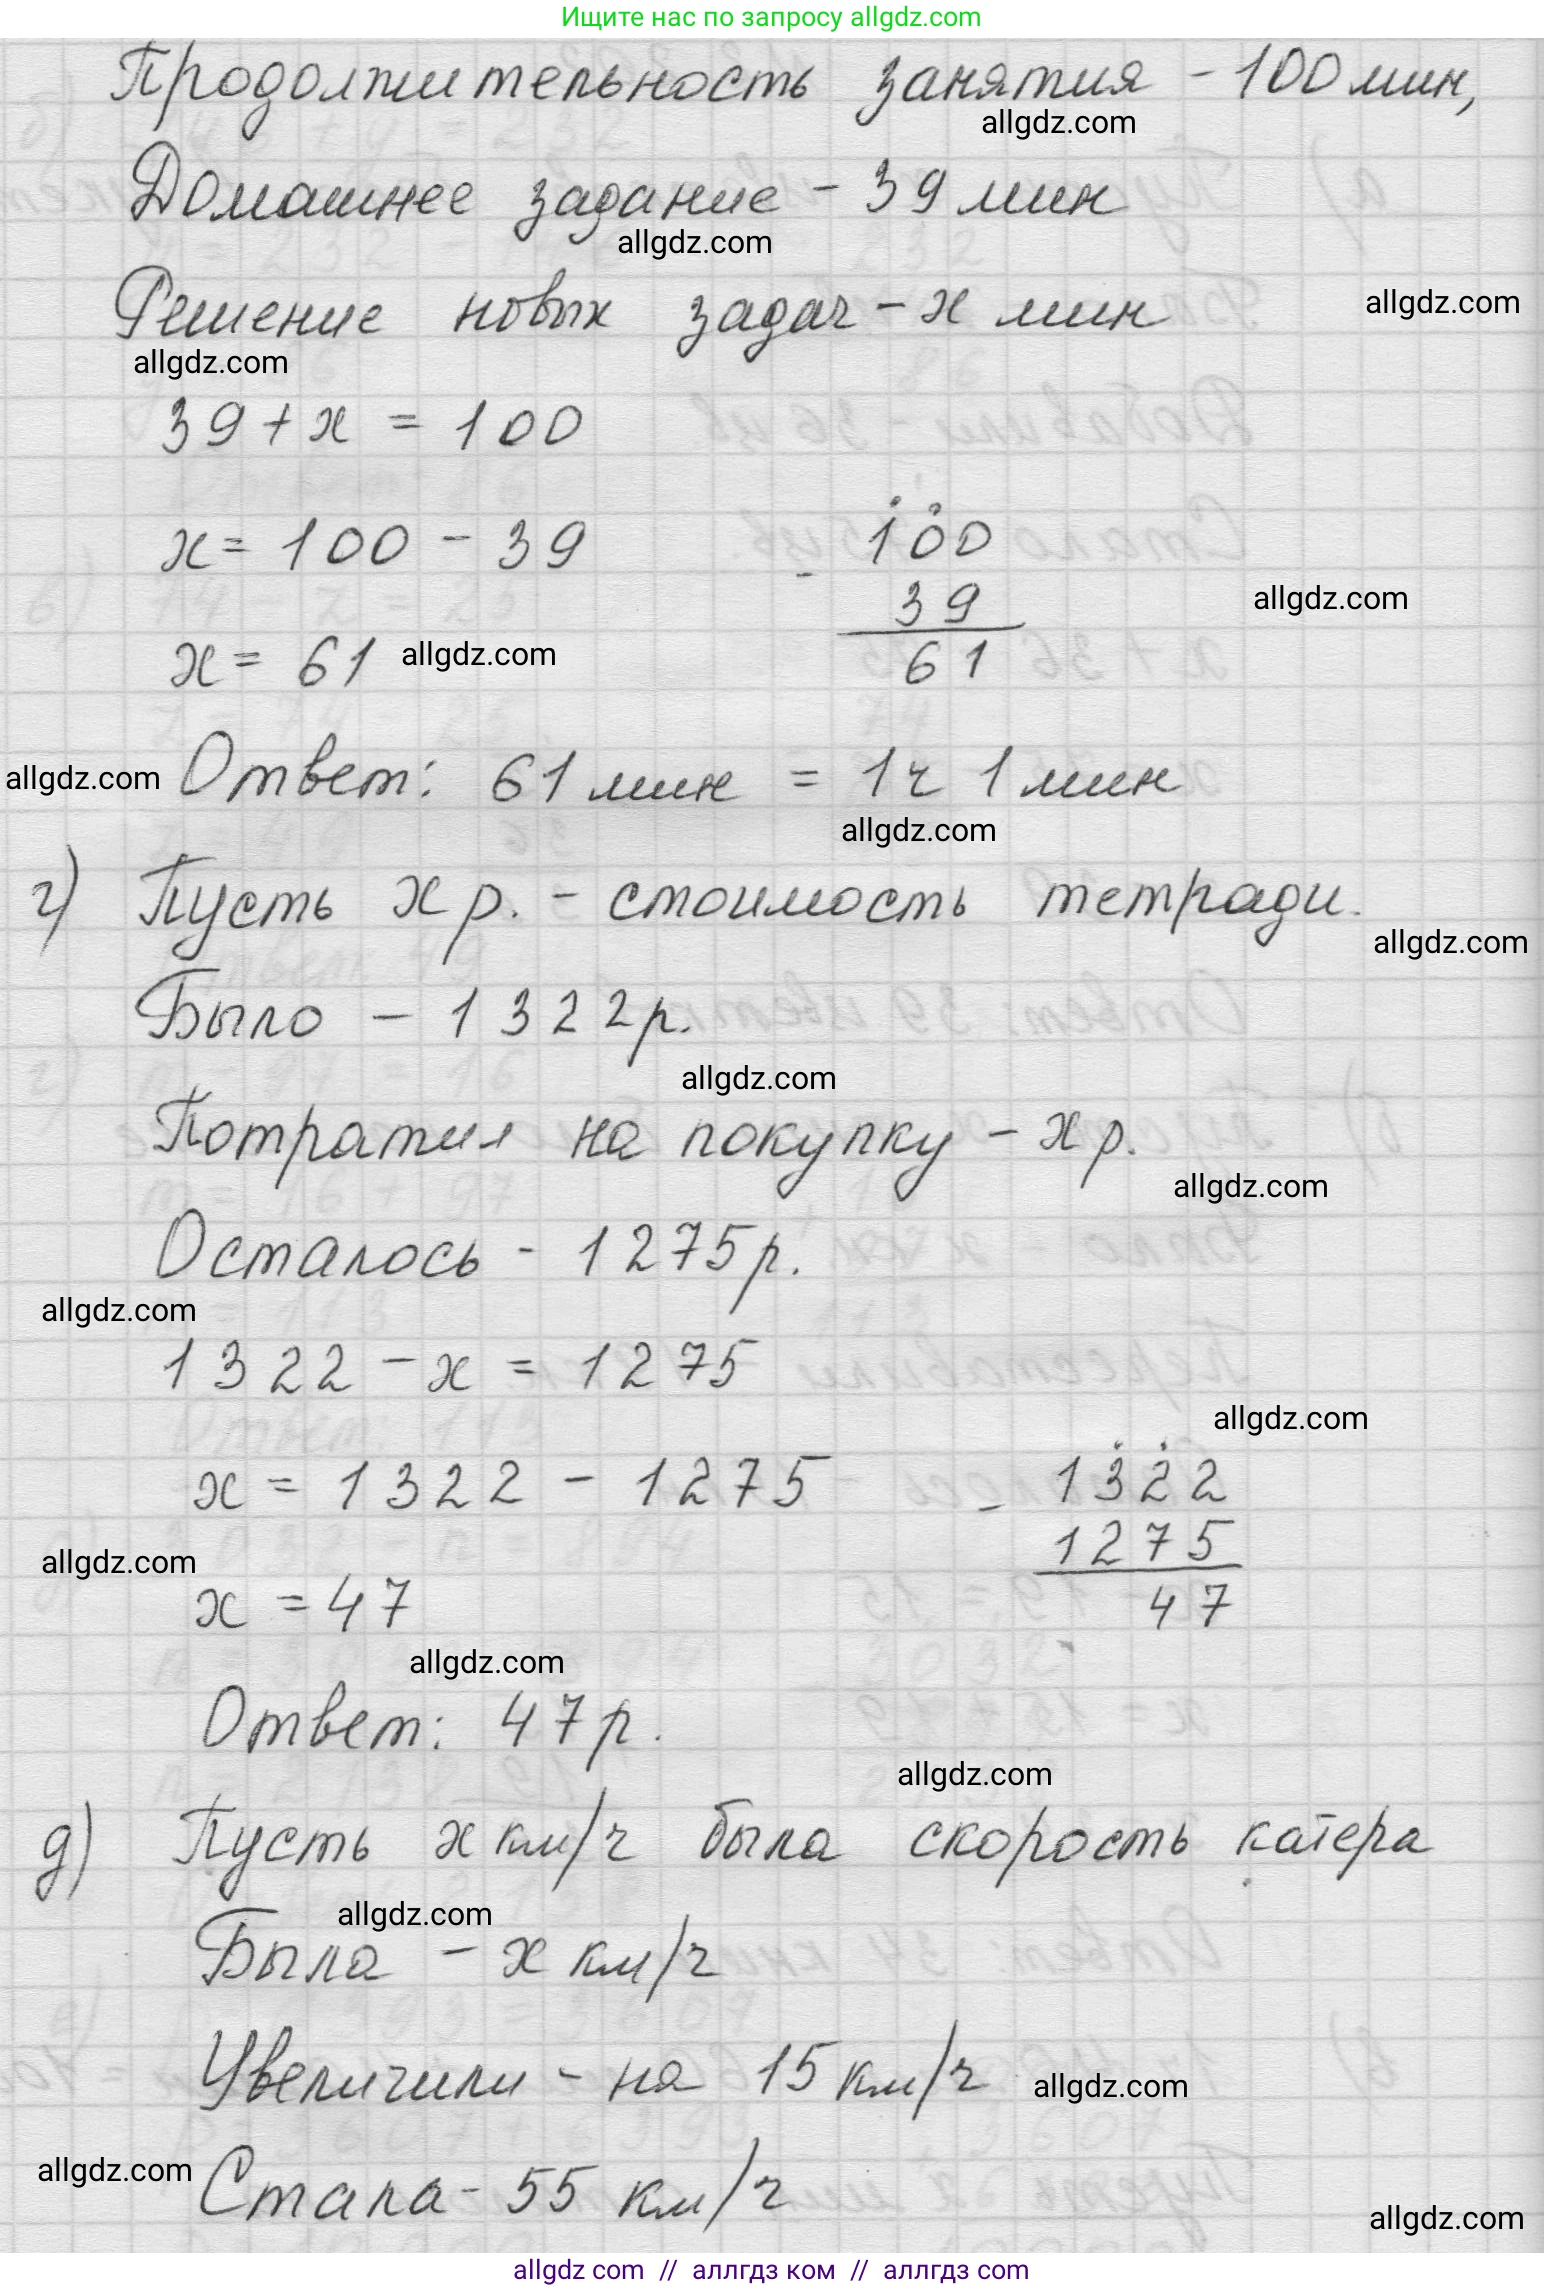 Ищите нас по запросу allgdz.com
Продолжительность занятия - 100 мин,
allgdz.com
Домашнее задание - 39 мин
allgdz.com
Решение новых задач - х мин
allgdz.com
allgdz.com
39 + х = 100
х = 100 - 39
100
- 39
61
allgdz.com
х = 61
allgdz.com
allgdz.com
Ответ: 61 мин = 1ч 1 мин
allgdz.com
г) Пусть х р. - стоимость тетради.
allgdz.com
Было - 1322 р.
allgdz.com
Потратил на покупку - х р.
allgdz.com
Осталось - 1275 р.
allgdz.com
1322 - х = 1275
allgdz.com
х = 1322 - 1275
1322
- 1275
47
allgdz.com
х = 47
allgdz.com
Ответ: 47 р.
allgdz.com
д) Пусть х км/ч была скорость катера
allgdz.com
Была - х км/ч
Увеличили - на 15 км/ч
allgdz.com
allgdz.com
Стала - 55 км/ч
allgdz.com
allgdz com // аллгдз ком // аллгдз com